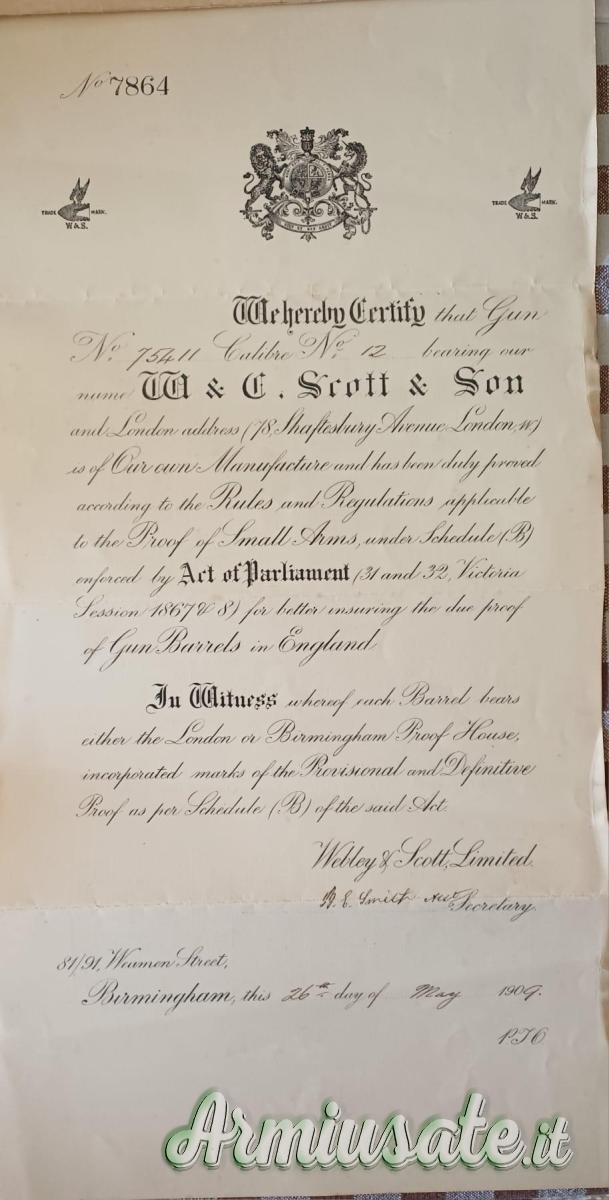 No 7864
TRADE MARK.
W & S.
TRADE MARK.
W & S.
We hereby Certify that Gun
No. 75411 Calibre No. 12 bearing our
name W & C. Scott & Son
and London address (78, Shaftesbury Avenue, London, W)
is of Our own Manufacture and has been duly proved
according to the Rules and Regulations applicable
to the Proof of Small Arms, under Schedule (B)
enforced by Act of Parliament (31 and 32, Victoria
Session 1867 & 8) for better insuring the due proof
of Gun Barrels in England
In Witness whereof each Barrel bears
either the London or Birmingham Proof House,
incorporated marks of the Provisional and Definitive
Proof as per Schedule (B) of the said Act.
Webley & Scott, Limited.
Smith Secretary.
81/91, Weamen Street,
Birmingham, this 26th day of May 1909.
P.T.O.
Armiusate.it